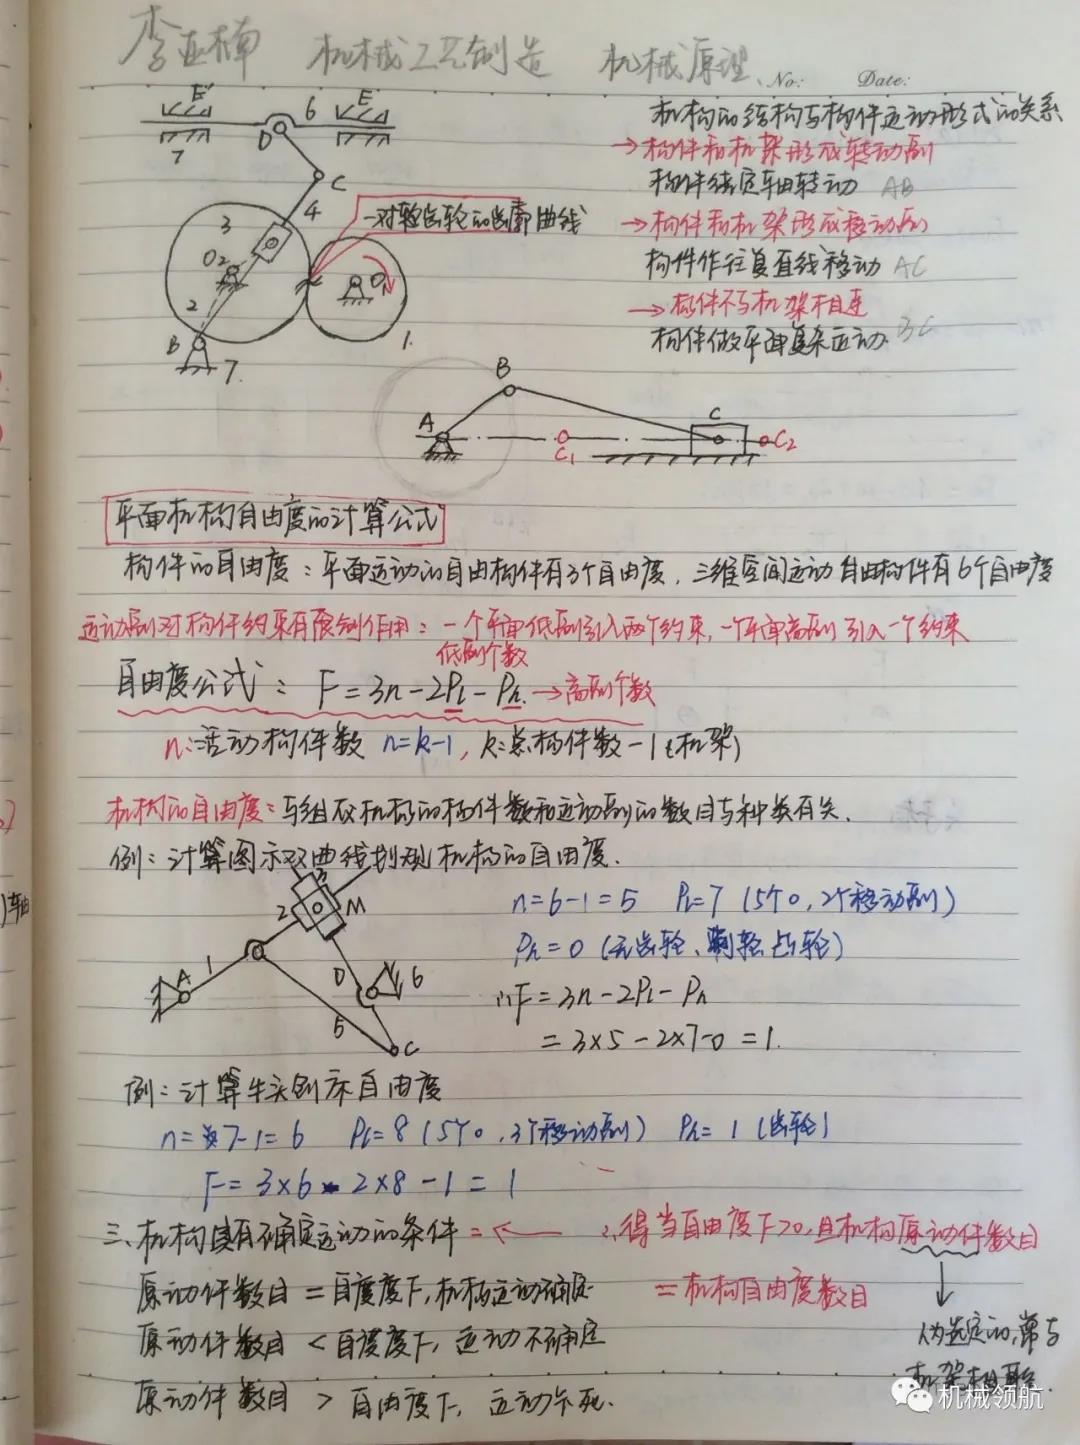 李亚楠 机械工艺制造 机械原理
No: Date:
机构的结构与构件运动形式的关系
→构件和机架形成转动副
构件绕定轴转动 AB
→构件和机架形成移动副
构件作往复直线移动 AC
→构件不与机架相连
构件做平面复杂运动. BC
E' 6 E
D
7
C
4
3
一对轮齿轮的齿廓曲线
O2
O1
2
B
7.
1.
A B C C1 C2
平面机构自由度的计算公式
构件的自由度：平面运动的自由构件有3个自由度，三维空间运动自由构件有6个自由度
运动副对构件约束有限制作用：一个平面低副引入两个约束，一个平面高副引入一个约束
低副个数
自由度公式：F=3n-2PL-Ph.→高副个数
n:活动构件数 n=k-1, k:总构件数-1(机架)
机构的自由度：与组成机构的构件数和运动副的数目与种类有关.
例：计算图示双曲线规机构的自由度.
3
2 M
A 1
D 6
5
C
n=6-1=5 PL=7 (5个o, 2个移动副)
Ph=0 (无齿轮、凸轮)
∴F=3n-2PL-Ph
=3×5-2×7-0=1.
例：计算牛头刨床自由度
n=7-1=6 PL=8 (5个o, 3个移动副) Ph=1 (齿轮)
F=3×6-2×8-1=1
三、机构具有确定运动的条件=← ∴得当自由度F>0,且机构原动件数目
=机构自由度数目
原动件数目=自度度F,机构运动确定
原动件数目<自度度F,运动不确定
原动件数目>自由度F,运动卡死.
认为选定的,常与
机架相联.
机械领航